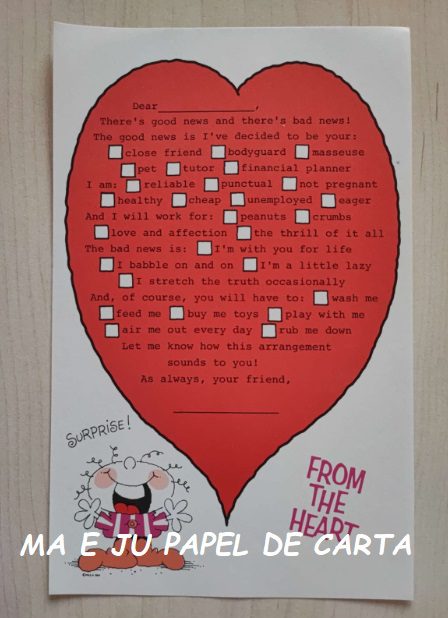 Dear ______________,
There's good news and there's bad news!
The good news is I've decided to be your:
close friend bodyguard masseuse
pet tutor financial planner
I am: reliable punctual not pregnant
healthy cheap unemployed eager
And I will work for: peanuts crumbs
love and affection the thrill of it all
The bad news is: I'm with you for life
I babble on and on I'm a little lazy
I stretch the truth occasionally
And, of course, you will have to: wash me
feed me buy me toys play with me
air me out every day rub me down
Let me know how this arrangement
sounds to you!
As always, your friend,
SURPRISE!
FROM
THE
HEART
MA E JU PAPEL DE CARTA